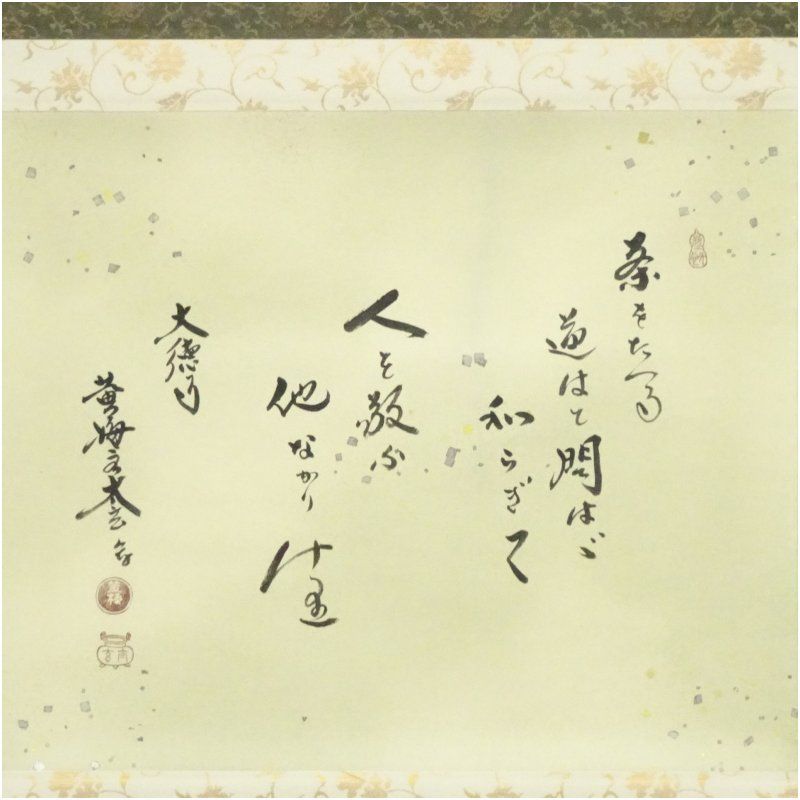 茶をたつる
道はと問はゞ
和らぎて
人を敬ふ
他なかりけり
大徳寺
黄梅 太玄
黄梅